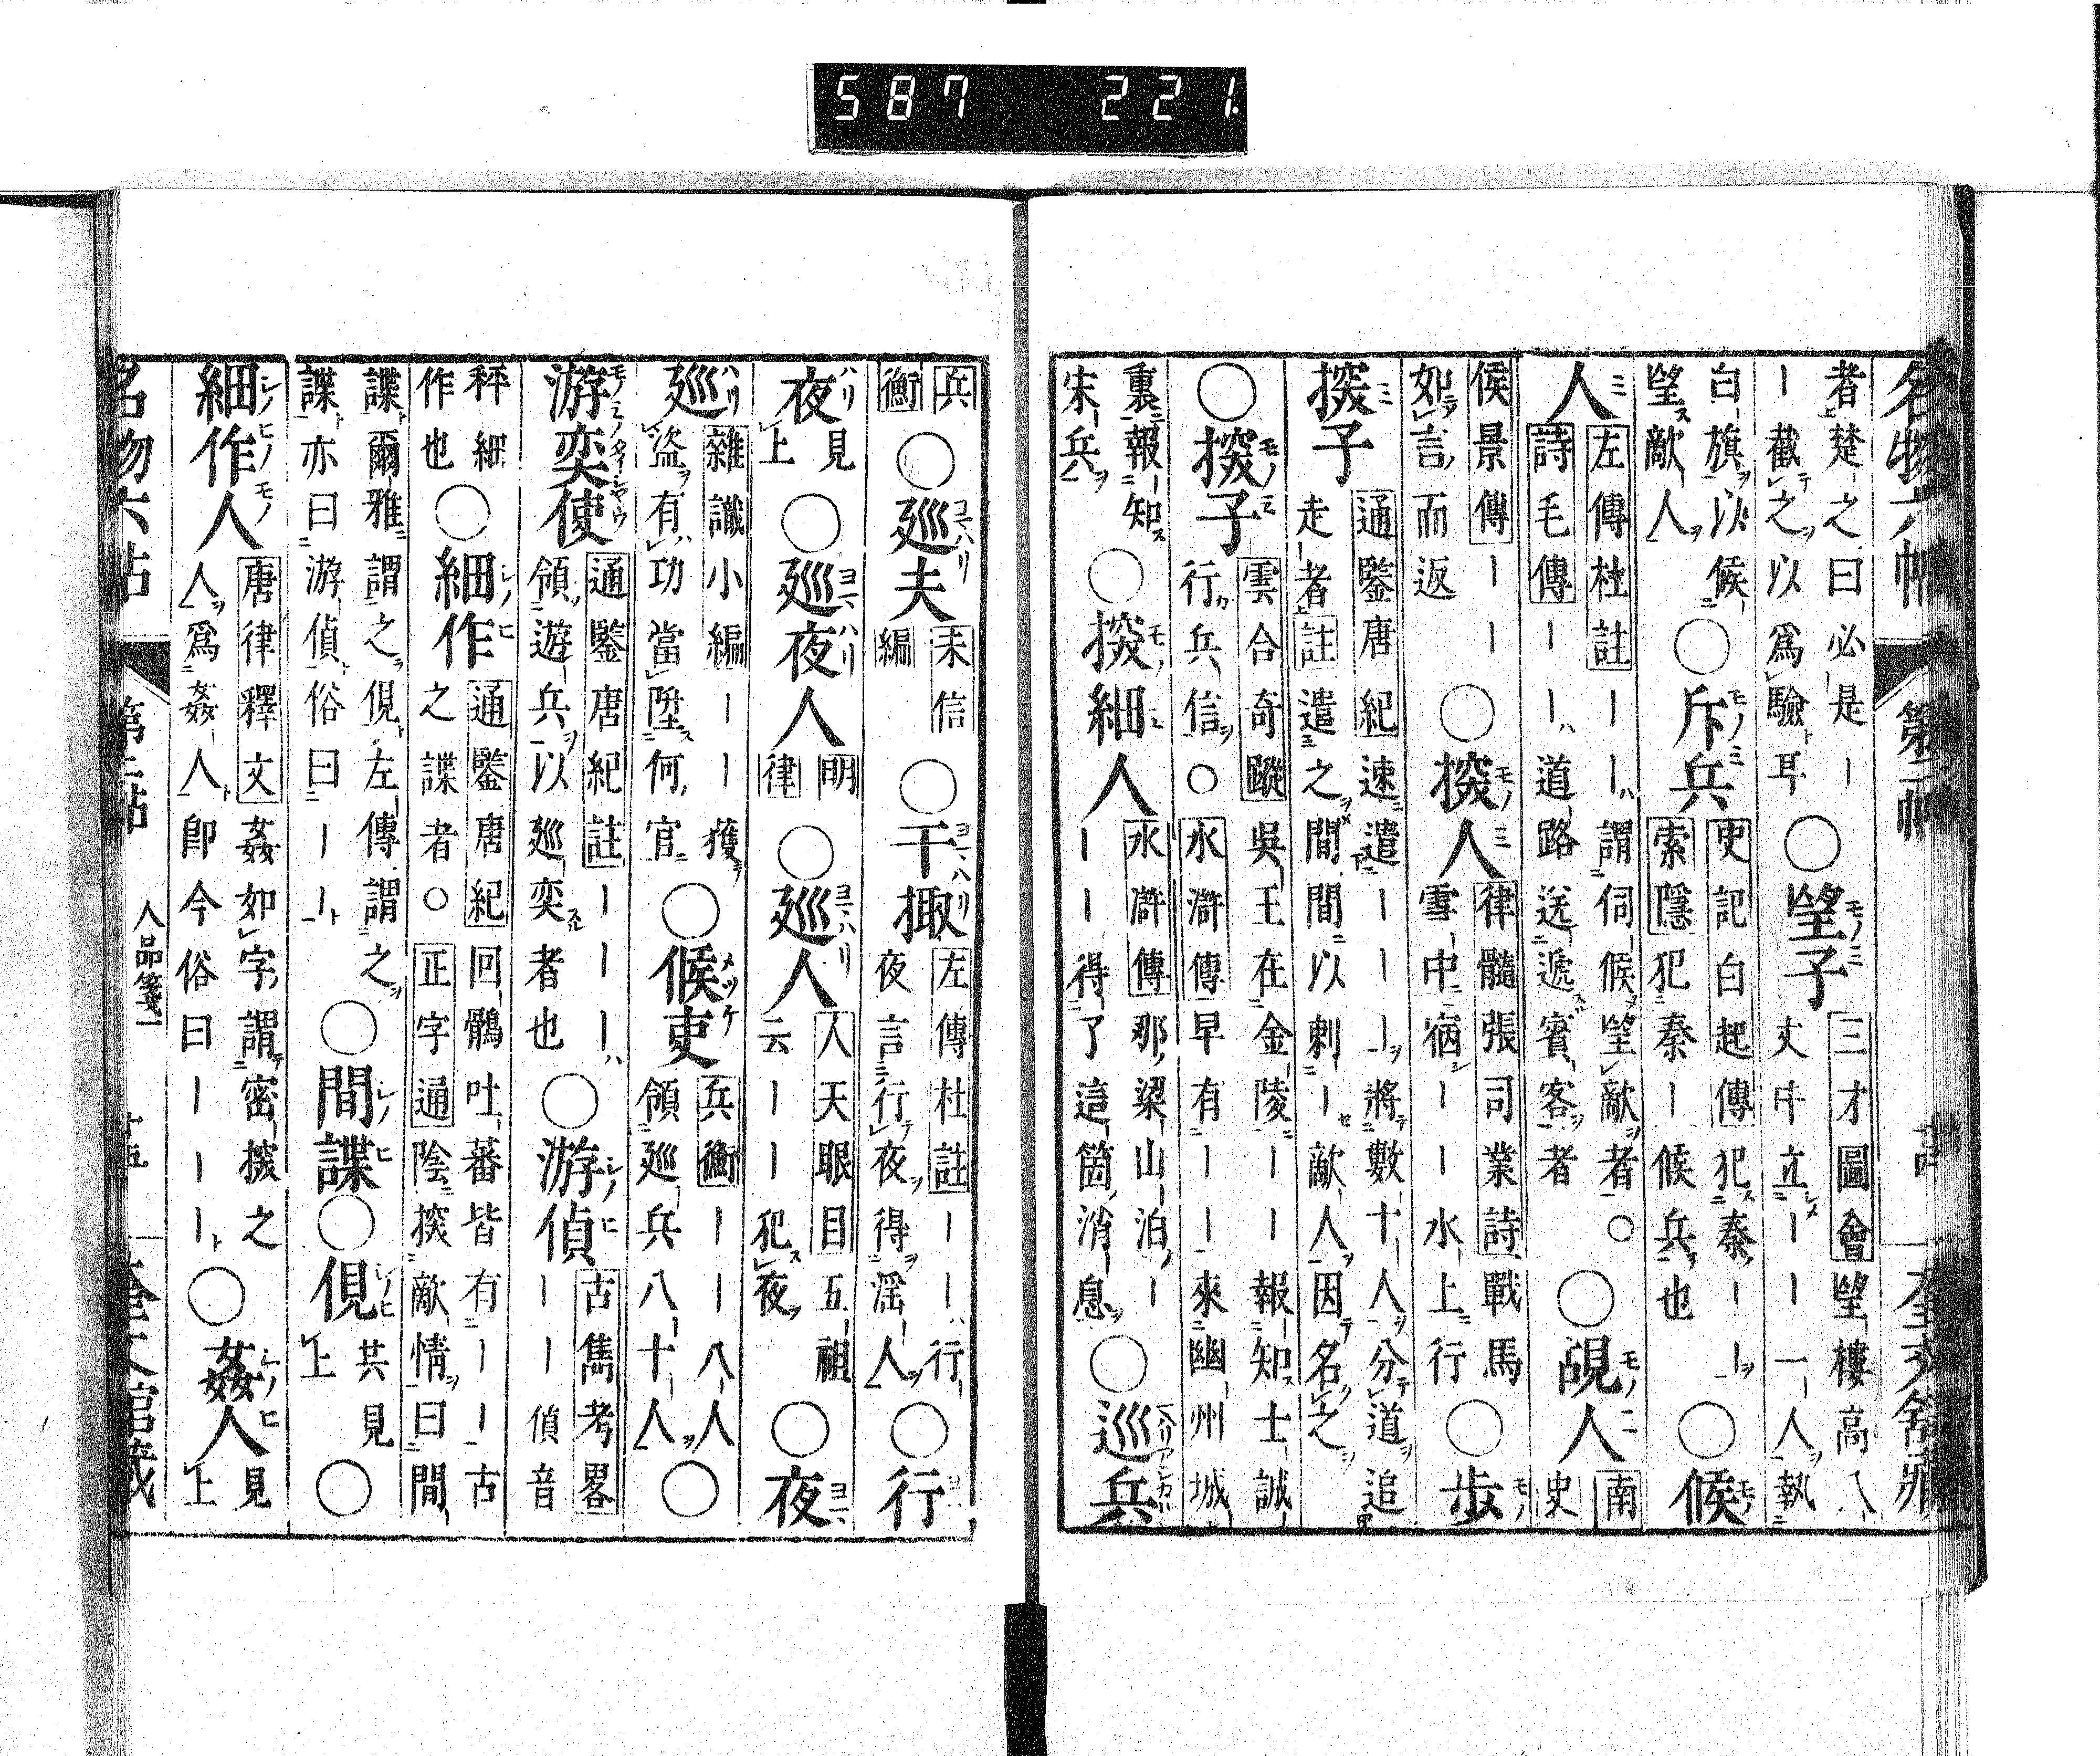 名物六帖 第二帖 奎文舘藏
者楚之曰必是｜
｜截之以爲驗耳
○望子
三才圖會望樓高八
丈中立｜｜一人執
白旗以候
望敵人
○斥兵
史記白起傳犯秦｜｜
索隱犯秦｜候兵也
○候
人
左傳杜註｜｜謂伺候望敵者○
詩毛傳｜｜道路送遞賓客者
○覘人
南
史
侯景傳｜｜
如言而返
○探人
律髓張司業詩戰馬
雪中宿｜｜水上行
○歩
探子
通鑒唐紀速遣｜｜｜將數十人分道追
走者註遣之間間以刺｜敵人因名之
○探子
雲合奇蹤吳王在金陵｜｜報知士誠
行兵信○水滸傳早有｜｜來幽州城
裏報知
宋兵
○探細人
水滸傳那梁山泊｜
｜｜得了這箇消息
○巡兵
兵
衝
○巡夫
未信
編
○干掫
左傳杜註｜｜行
夜言行夜得淫人
○行
夜
見
上
○巡夜人
明
律
○巡人
人天眼目五祖
云｜｜犯夜
○夜
巡
雜識小編｜｜獲
盜有功當陞何官
○候吏
兵衝｜｜八人
領巡兵八十人
○
游奕使
通鑒唐紀註｜｜｜
領遊兵以巡奕者也
○游偵
古雋考畧
｜｜偵音
秤細
作也
○細作
通鑒唐紀回鶻吐蕃皆有｜｜古
之諜者○正字通陰探敵情曰間
諜爾雅謂之俔左傳謂之
諜亦曰游偵俗曰｜｜
○間諜
○俔
共見
上
○
細作人
唐律釋文姦如字謂密探之
人爲姦人卽今俗曰｜｜｜
○姦人
見
上
名物六帖 第二帖 人品箋一 十五 奎文舘藏